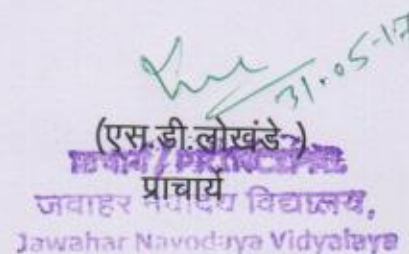 31.05-17
(एस.डी.लोखंडे )
प्राचार्य / PRINCIPAL
प्राचार्य
जवाहर नवोदय विद्यालय,
Jawahar Navodaya Vidyalaya